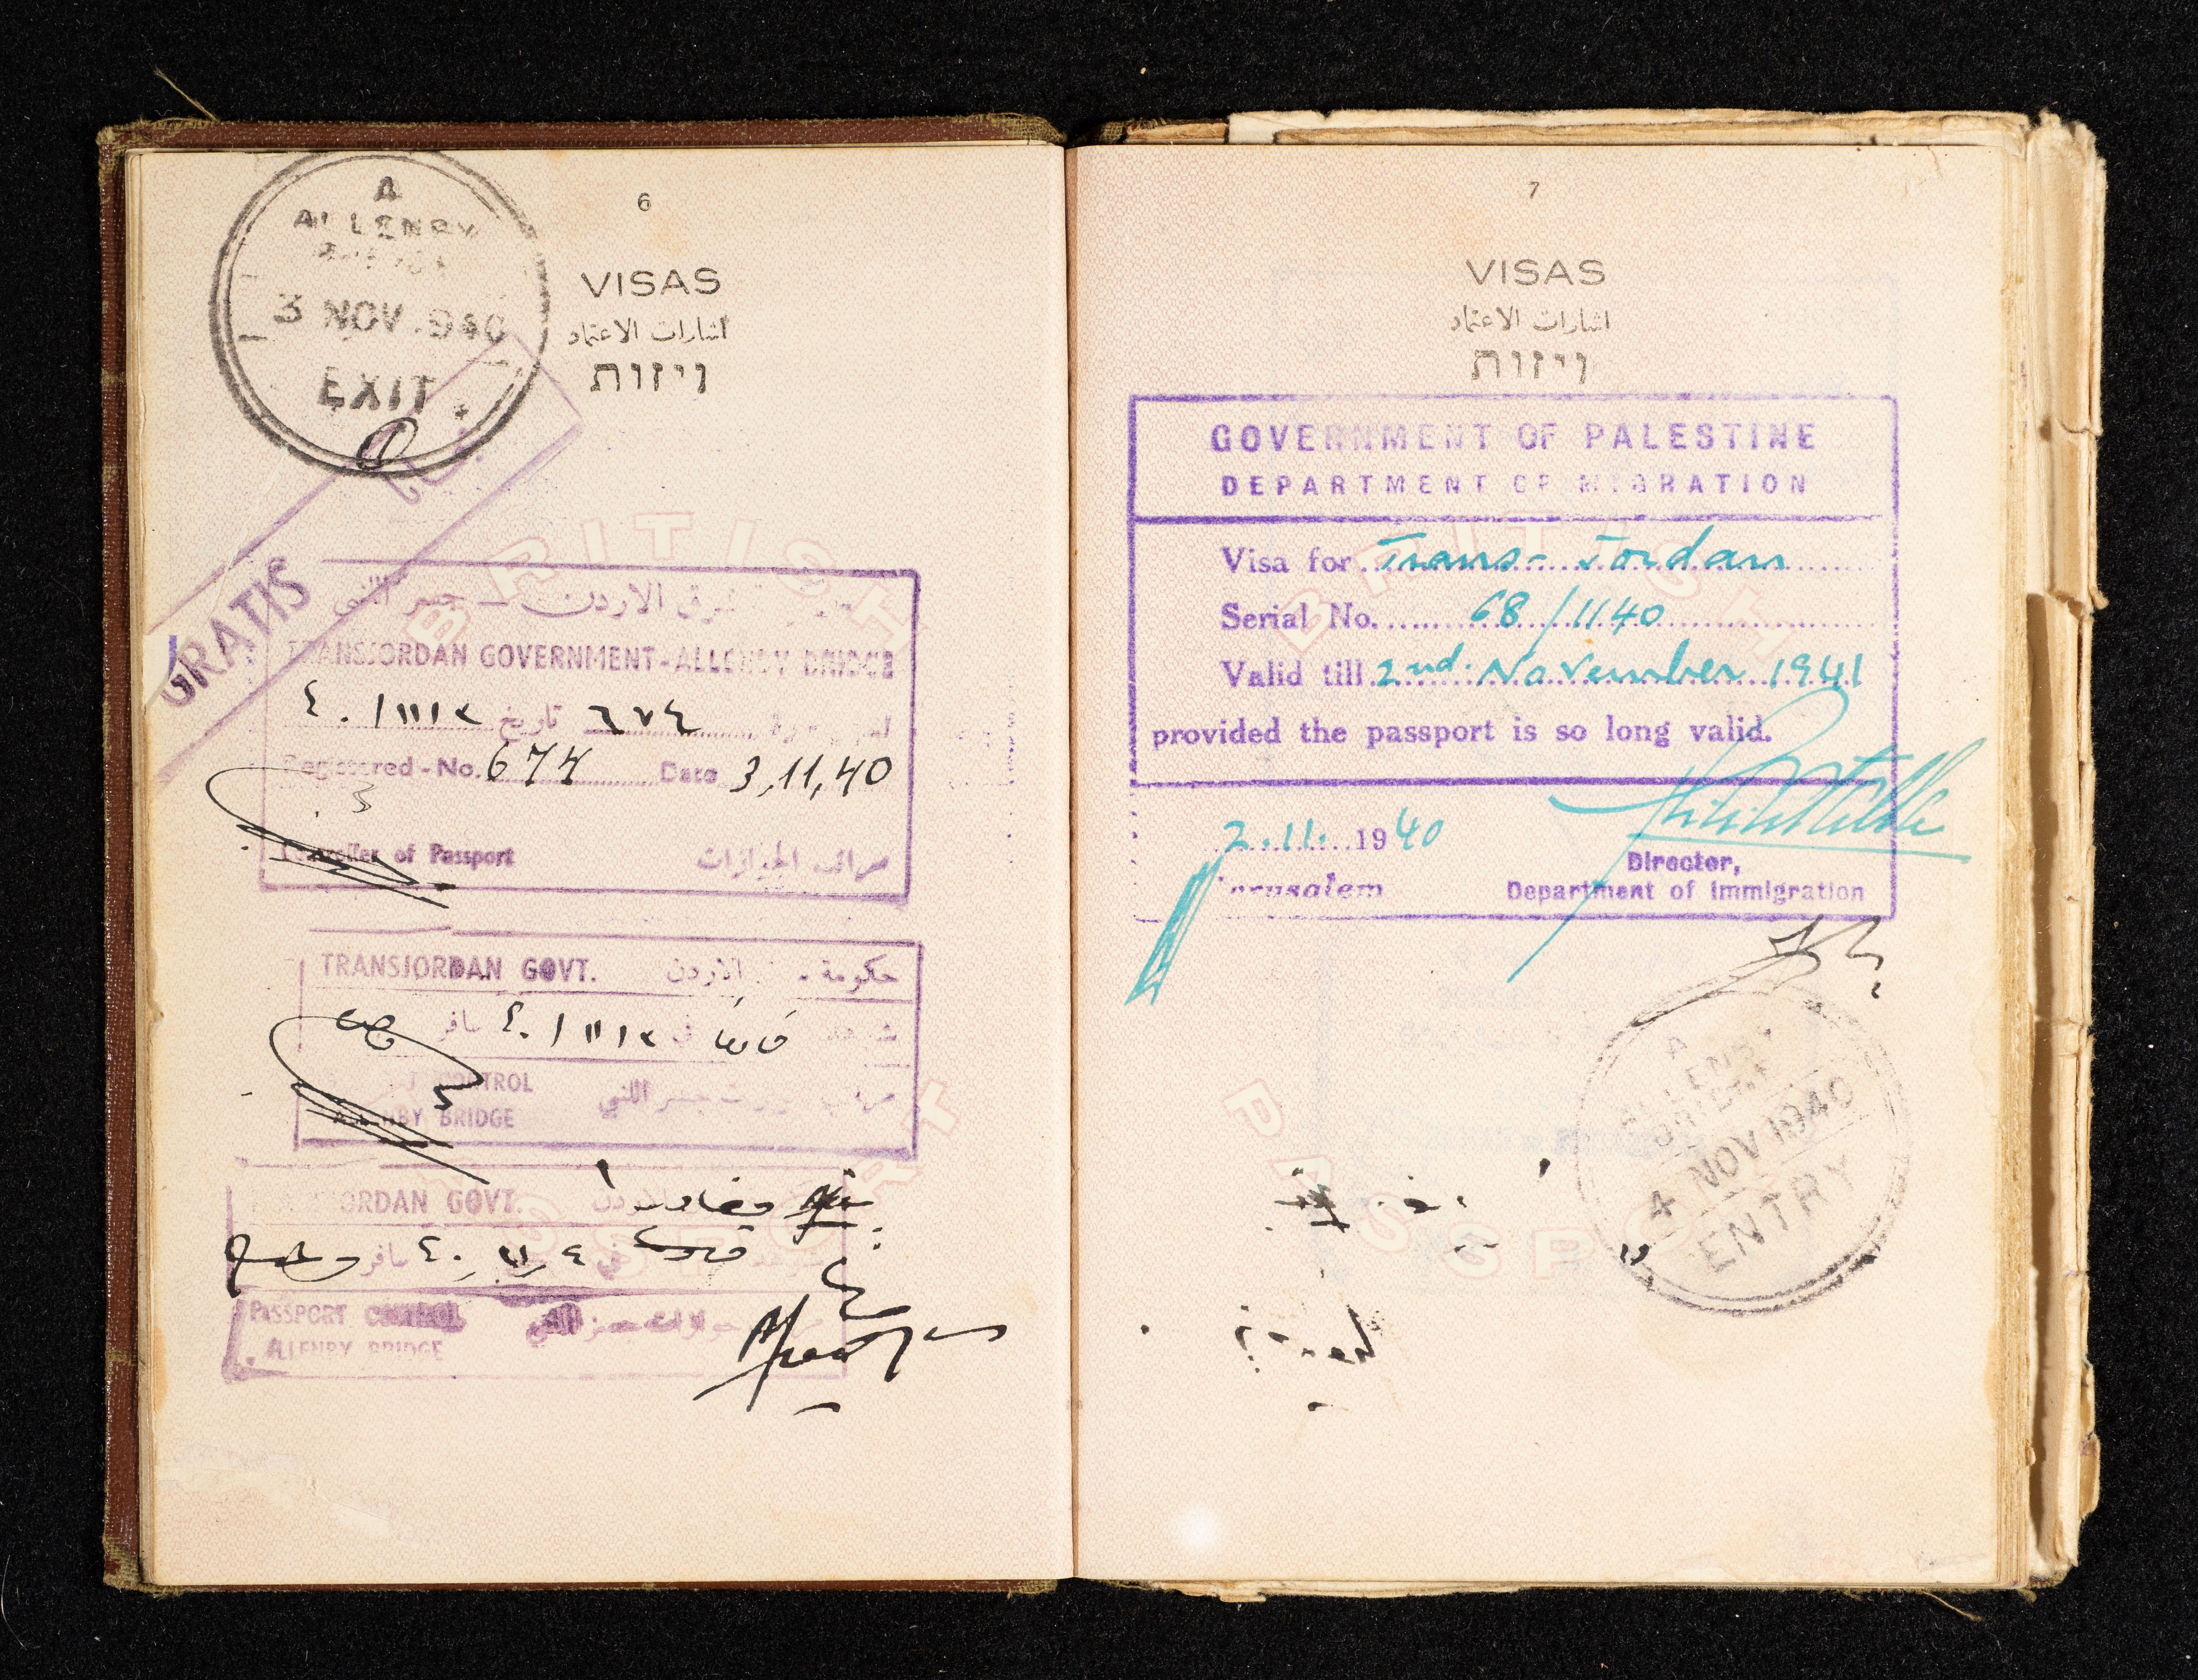 6
VISAS
اشارات الاعتماد
ויזות
A
ALLENBY
3 NOV 1940
EXIT
GRATIS
شرق الاردن – جسر اللنبي
TRANSJORDAN GOVERNMENT-ALLENBY BRIDGE
٦٧٤ تاريخ ٣/١١/٤٠
Registered - No. 674 Date 3,11,40
Controller of Passport
مراقب الجوازات
TRANSJORDAN GOVT. حكومة الاردن
في ٣/١١/٤٠ سافر
CONTROL
جسر اللنبي
ALLENBY BRIDGE
TRANSJORDAN GOVT.
في ٤/١١/٤٠ سافر
PASSPORT CONTROL
ALLENBY BRIDGE
7
VISAS
اشارات الاعتماد
ויזות
GOVERNMENT OF PALESTINE
DEPARTMENT OF MIGRATION
Visa for Trans-Jordan
Serial No. 68/1140
Valid till 2nd. November 1941
provided the passport is so long valid.
2.11. 1940
Jerusalem
Director,
Department of Immigration
A
ALLENBY
4 NOV 1940
ENTRY
BRITISH
PASSPORT
BRITISH
PASSPORT